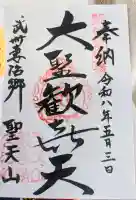 奉納 令和八年五月三日
大聖歓喜天
武州東阿郷 聖天山